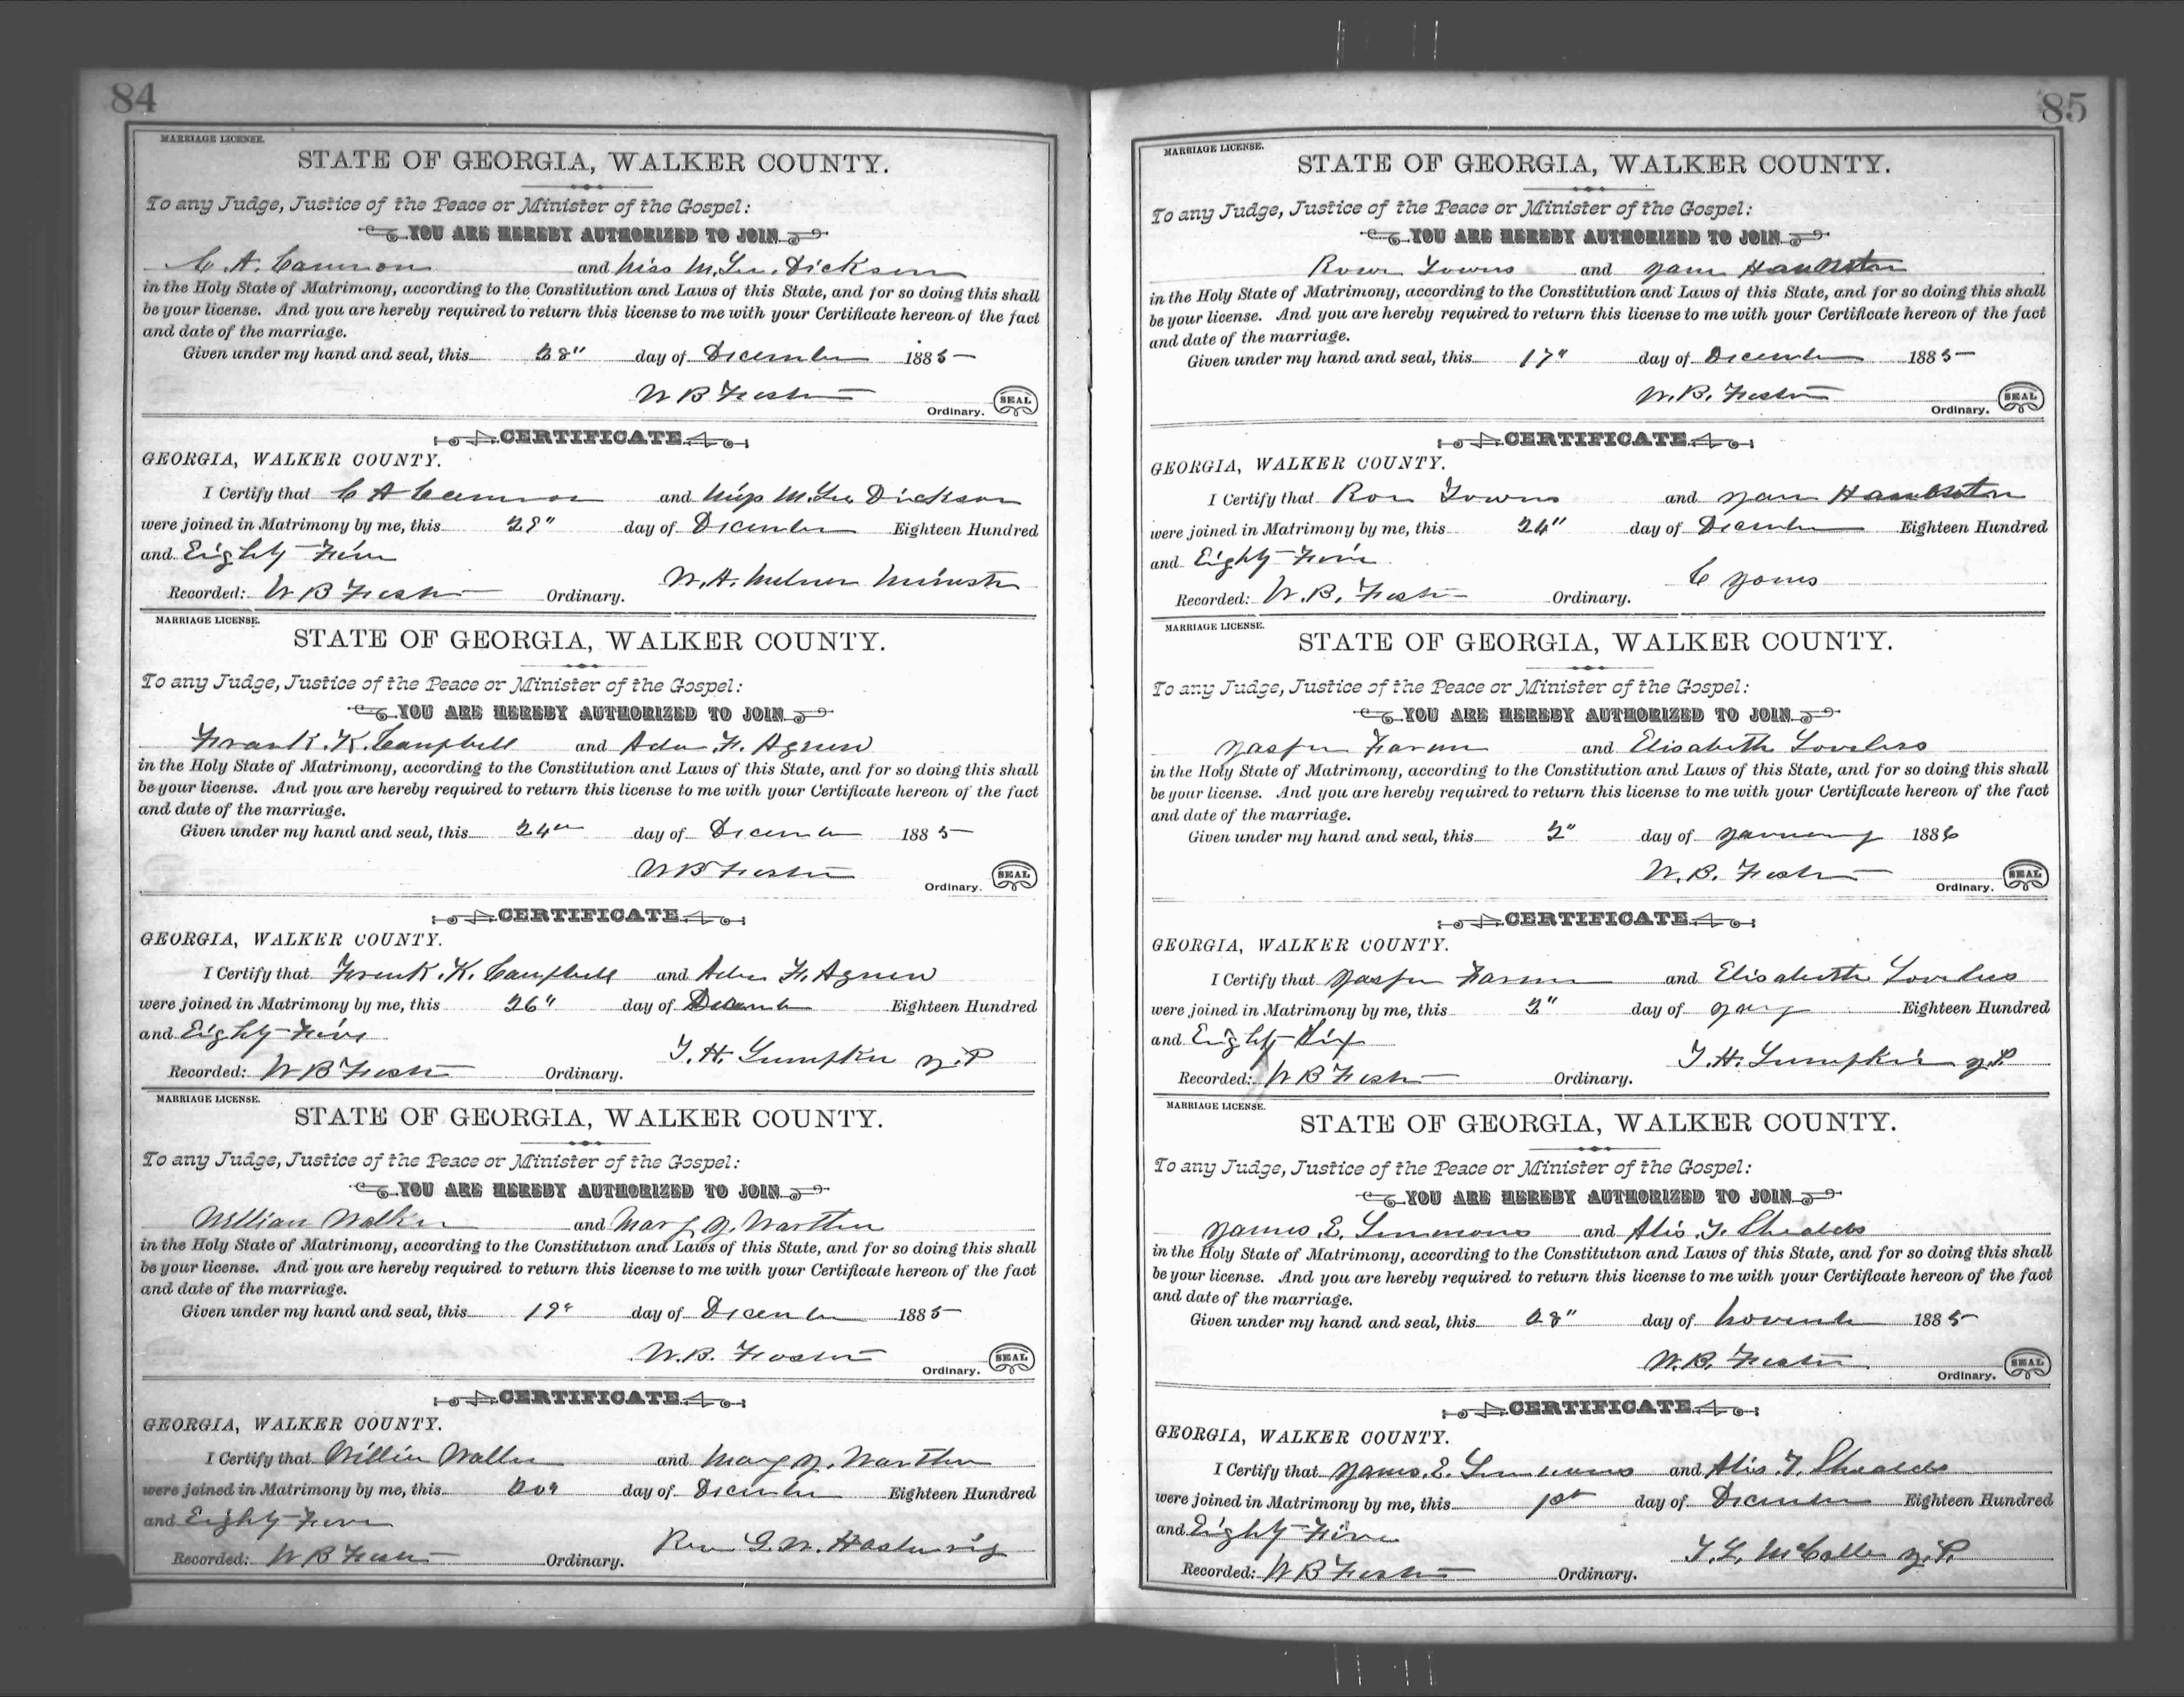 84
MARRIAGE LICENSE.
STATE OF GEORGIA, WALKER COUNTY.
To any Judge, Justice of the Peace or Minister of the Gospel:
YOU ARE HEREBY AUTHORIZED TO JOIN
C. A. Cameron and Miss M. Lee. Dickson
in the Holy State of Matrimony, according to the Constitution and Laws of this State, and for so doing this shall
be your license. And you are hereby required to return this license to me with your Certificate hereon of the fact
and date of the marriage.
Given under my hand and seal, this 28" day of December 1885
W B Foster
Ordinary. SEAL
CERTIFICATE
GEORGIA, WALKER COUNTY.
I Certify that C A Cameron and Miss M. Lee Dickson
were joined in Matrimony by me, this 28" day of December Eighteen Hundred
and Eighty Five
W. A. Milner Minister
Recorded: W B Foster Ordinary.
MARRIAGE LICENSE.
STATE OF GEORGIA, WALKER COUNTY.
To any Judge, Justice of the Peace or Minister of the Gospel:
YOU ARE HEREBY AUTHORIZED TO JOIN
Frank. K. Campbell and Ada F. Agnew
in the Holy State of Matrimony, according to the Constitution and Laws of this State, and for so doing this shall
be your license. And you are hereby required to return this license to me with your Certificate hereon of the fact
and date of the marriage.
Given under my hand and seal, this 24 day of December 1885
W B Foster
Ordinary. SEAL
CERTIFICATE
GEORGIA, WALKER COUNTY.
I Certify that Frank. K. Campbell and Ada F. Agnew
were joined in Matrimony by me, this 26" day of December Eighteen Hundred
and Eighty Five
T. H. Lumpkin J.P
Recorded: W B Foster Ordinary.
MARRIAGE LICENSE.
STATE OF GEORGIA, WALKER COUNTY.
To any Judge, Justice of the Peace or Minister of the Gospel:
YOU ARE HEREBY AUTHORIZED TO JOIN
William Walker and Mary J. Warthen
in the Holy State of Matrimony, according to the Constitution and Laws of this State, and for so doing this shall
be your license. And you are hereby required to return this license to me with your Certificate hereon of the fact
and date of the marriage.
Given under my hand and seal, this 19" day of December 1885
W. B. Foster
Ordinary. SEAL
CERTIFICATE
GEORGIA, WALKER COUNTY.
I Certify that William Walker and Mary J. Warthen
were joined in Matrimony by me, this 20" day of December Eighteen Hundred
and Eighty Five
Rev G. W.
Recorded: W B Foster Ordinary.
85
MARRIAGE LICENSE.
STATE OF GEORGIA, WALKER COUNTY.
To any Judge, Justice of the Peace or Minister of the Gospel:
YOU ARE HEREBY AUTHORIZED TO JOIN
Towns and Jane
in the Holy State of Matrimony, according to the Constitution and Laws of this State, and for so doing this shall
be your license. And you are hereby required to return this license to me with your Certificate hereon of the fact
and date of the marriage.
Given under my hand and seal, this 17" day of December 1885
W. B. Foster
Ordinary. SEAL
CERTIFICATE
GEORGIA, WALKER COUNTY.
I Certify that Towns and Jane
were joined in Matrimony by me, this 24" day of December Eighteen Hundred
and Eighty Five
C
Recorded: W. B. Foster Ordinary.
MARRIAGE LICENSE.
STATE OF GEORGIA, WALKER COUNTY.
To any Judge, Justice of the Peace or Minister of the Gospel:
YOU ARE HEREBY AUTHORIZED TO JOIN
Jasper Farmer and Elisabeth Loveless
in the Holy State of Matrimony, according to the Constitution and Laws of this State, and for so doing this shall
be your license. And you are hereby required to return this license to me with your Certificate hereon of the fact
and date of the marriage.
Given under my hand and seal, this 2" day of January 1886
W. B. Foster
Ordinary. SEAL
CERTIFICATE
GEORGIA, WALKER COUNTY.
I Certify that Jasper Farmer and Elisabeth Loveless
were joined in Matrimony by me, this 2" day of Jany Eighteen Hundred
and Eighty Six
T. H. Lumpkin J.P.
Recorded: W B Foster Ordinary.
MARRIAGE LICENSE.
STATE OF GEORGIA, WALKER COUNTY.
To any Judge, Justice of the Peace or Minister of the Gospel:
YOU ARE HEREBY AUTHORIZED TO JOIN
James. E. Simmons and Alis. T. Shealds
in the Holy State of Matrimony, according to the Constitution and Laws of this State, and for so doing this shall
be your license. And you are hereby required to return this license to me with your Certificate hereon of the fact
and date of the marriage.
Given under my hand and seal, this 28" day of November 1885
W. B. Foster
Ordinary. SEAL
CERTIFICATE
GEORGIA, WALKER COUNTY.
I Certify that James. E. Simmons and Alis. T. Shealds
were joined in Matrimony by me, this 1st day of December Eighteen Hundred
and Eighty Five
McCaller J.P.
Recorded: W B Foster Ordinary.